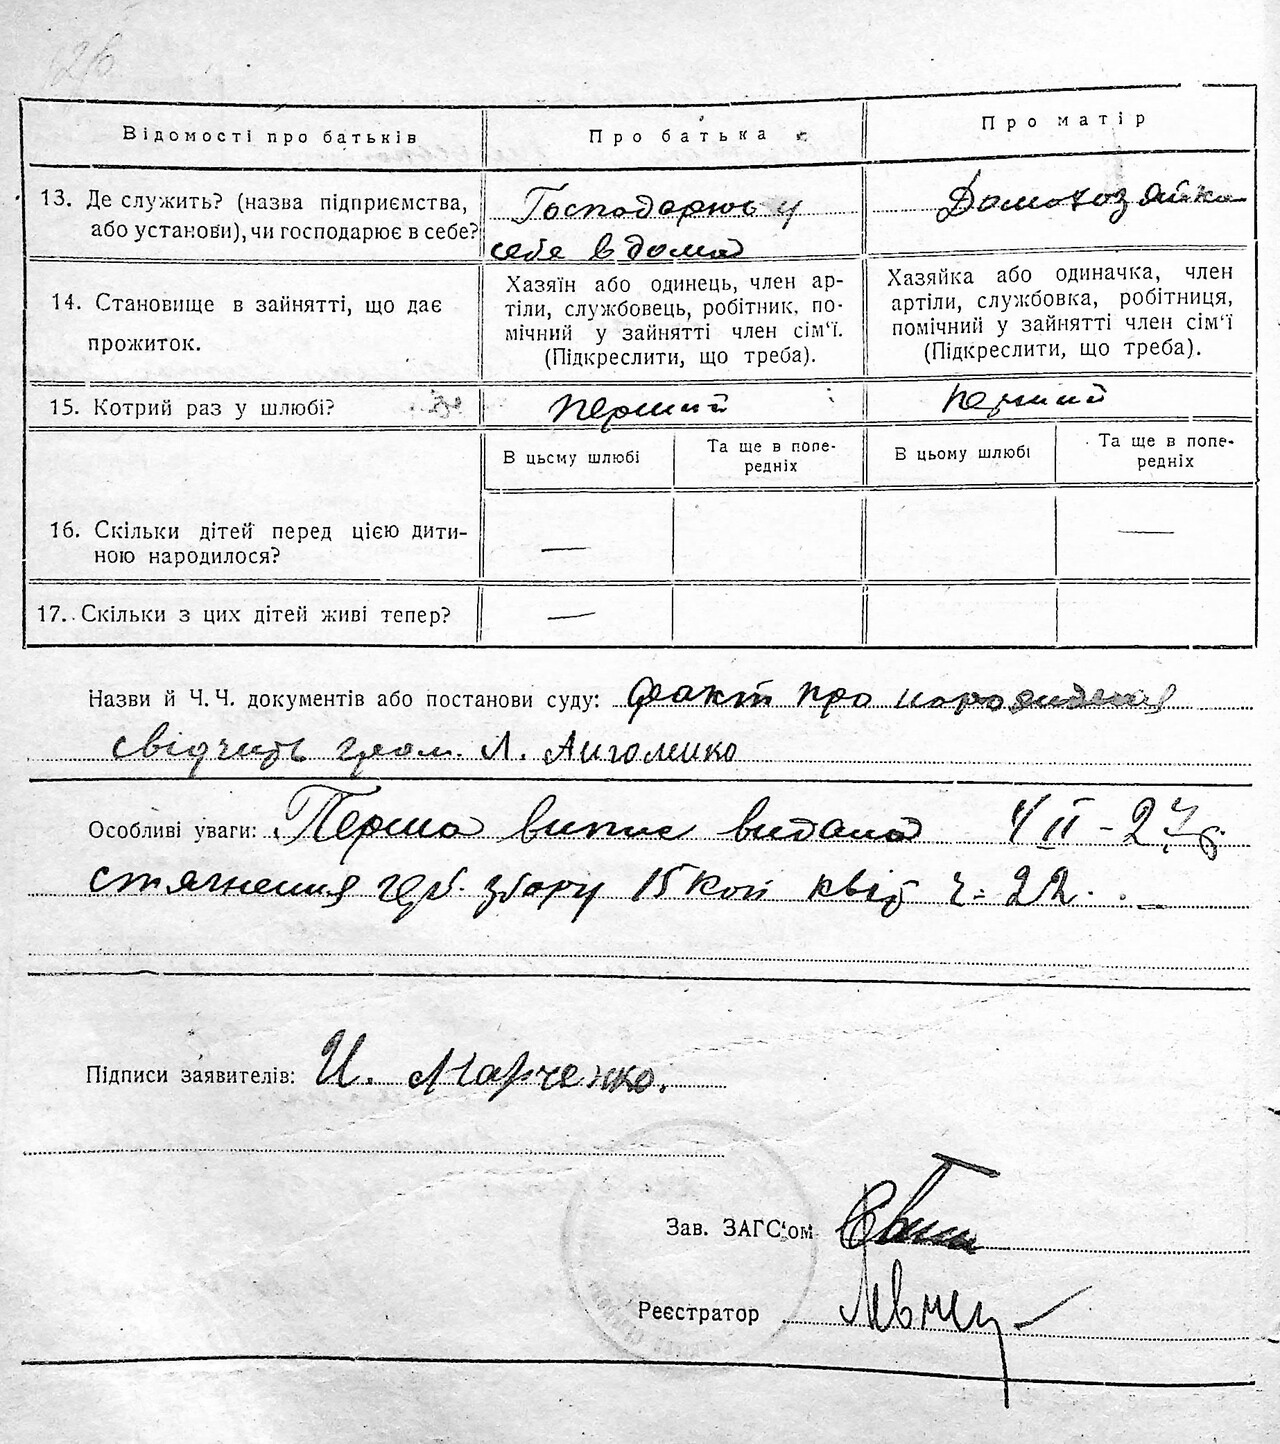 26
Відомості про батьків
Про батька
Про матір
13. Де служить? (назва підприємства,
або установи), чи господарює в себе?
Господарює у
себе вдома
Домохозяйка
14. Становище в зайнятті, що дає
прожиток.
Хазяїн або одинець, член ар-
тіли, службовець, робітник, по-
мічний у зайнятті член сім'ї.
(Підкреслити, що треба).
Хазяйка або одиначка, член
артіли, службовка, робітниця,
помічний у зайнятті член сім'ї
(Підкреслити, що треба).
15. Котрий раз у шлюбі?
перший
перший
В цьому шлюбі
Та ще в попе-
редніх
В цьому шлюбі
Та ще в попе-
редніх
16. Скільки дітей перед цією дити-
ною народилося?
—
—
17. Скільки з цих дітей живі тепер?
—
Назви й Ч. Ч. документів або постанови суду: факт про народження
свідчить гром. Л.
Особливі уваги: Перша випис видана 4/II-27
стягнення герб. збору 15 коп квіт ч= 22. —
Підписи заявителів: И. Марченко.
Зав. ЗАГС'ом
Реєстратор